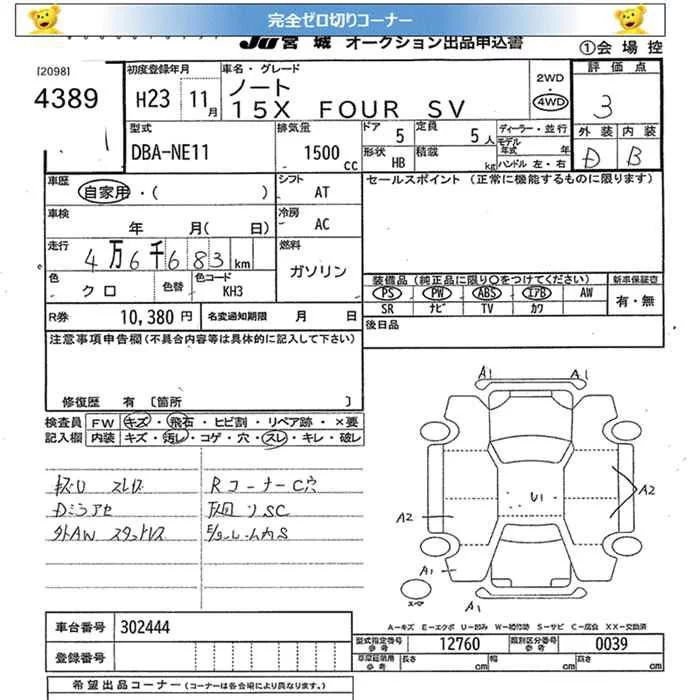 完全ゼロ切りコーナー
JU宮城 オークション出品申込書
①会場控
[2098]
4389
初度登録年月
H23 11月
車名・グレード
ノート
15X FOUR SV
2WD
・
4WD
評価点
3
外装 内装
D B
型式
DBA-NE11
排気量
1500 cc
ドア 5
形状 HB
定員 5人
積載 kg
ディーラー・並行
モデル年式 年
ハンドル 左・右
車歴
自家用・( )
シフト
AT
セールスポイント (正常に機能するものに限ります)
車検
年 月( 日)
冷房
AC
走行
4万6千683km
燃料
ガソリン
色
クロ
色替
色コード
KH3
装備品(純正品に限り○をつけてください)
新車保証書
PS PW ABS エアB AW
SR ナビ TV カワ
有・無
R券 10,380円
名変通知期限 月 日
後日品
注意事項申告欄(不具合内容等は具体的に記入して下さい)
修復歴 有 [箇所 ]
検査員記入欄
FW キズ・飛石・ヒビ割・リペア跡・×要
内装 キズ・汚レ・コゲ・穴・スレ・キレ・破レ
RコーナーC穴
Dミラアセ
下回りSC
外AW スタットレス
A1 A1
U1
A2
A2
A1
A1
スペア
A-キズ E-エクボ U-凹み W-補修跡 S-サビ C-腐食 XX-交換済
車台番号 302444
登録番号
型式指定番号 参考 12760
類別区分番号 参考 0039
車庫証明用 参考 長さ cm 幅 cm 高さ cm
希望出品コーナー (コーナーは各会場により異なります。)